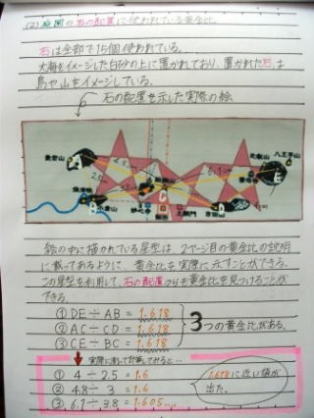 (2) 庭園の石の配置に使われている黄金比。
石は全部で15個使われている。
大海をイメージした白砂の上に置かれており、置かれた石は
島や山をイメージしている。
石の配置を示した実際の絵
愛宕山
比叡山
小倉山
吉田山
A
B
C
D
E
絵の中に描かれている星型は、2ページ目の黄金比の説明
に載ってあるように、黄金比を実際に示すことができる。
この星型を利用して、石の配置からも黄金比を見つけることが
できる。
① DE÷AB = 1.618
② AC÷CD = 1.618
③ CE÷BC = 1.618
3つの黄金比がある。
実際に測って計算してみると…
① 4÷2.5 = 1.6
② 4.8÷3 = 1.6
③ 6.1÷3.8 = 1.605…
1.618に近い値が
出た。